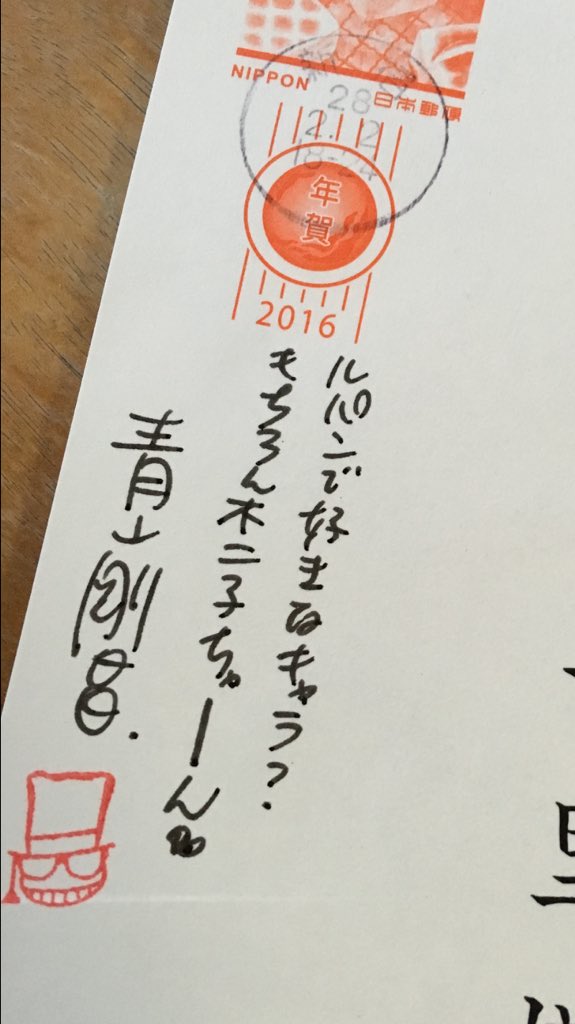 NIPPON 日本郵便
28
2.12
18-24
年
賀
2016
ルパンで好きなキャラ?
もちろん不二子ちゃーん
青山剛昌.